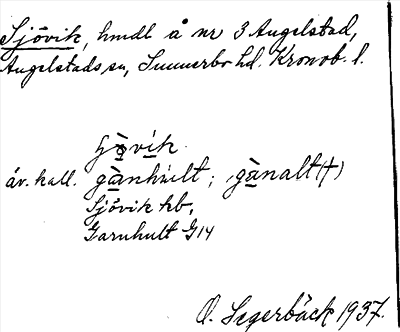 Sjövik, hmdl å nr 3 Angelstad,
Angelstads sn, Sunnerbo hd. Kronob. l.
äv. kall. gànhùlt; gànalt (†)
Sjövik kb,
Garnhult G14
O. Segerbäck 1937.